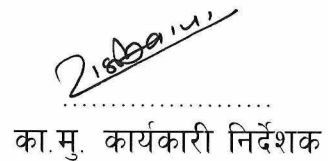 का.मु. कार्यकारी निर्देशक